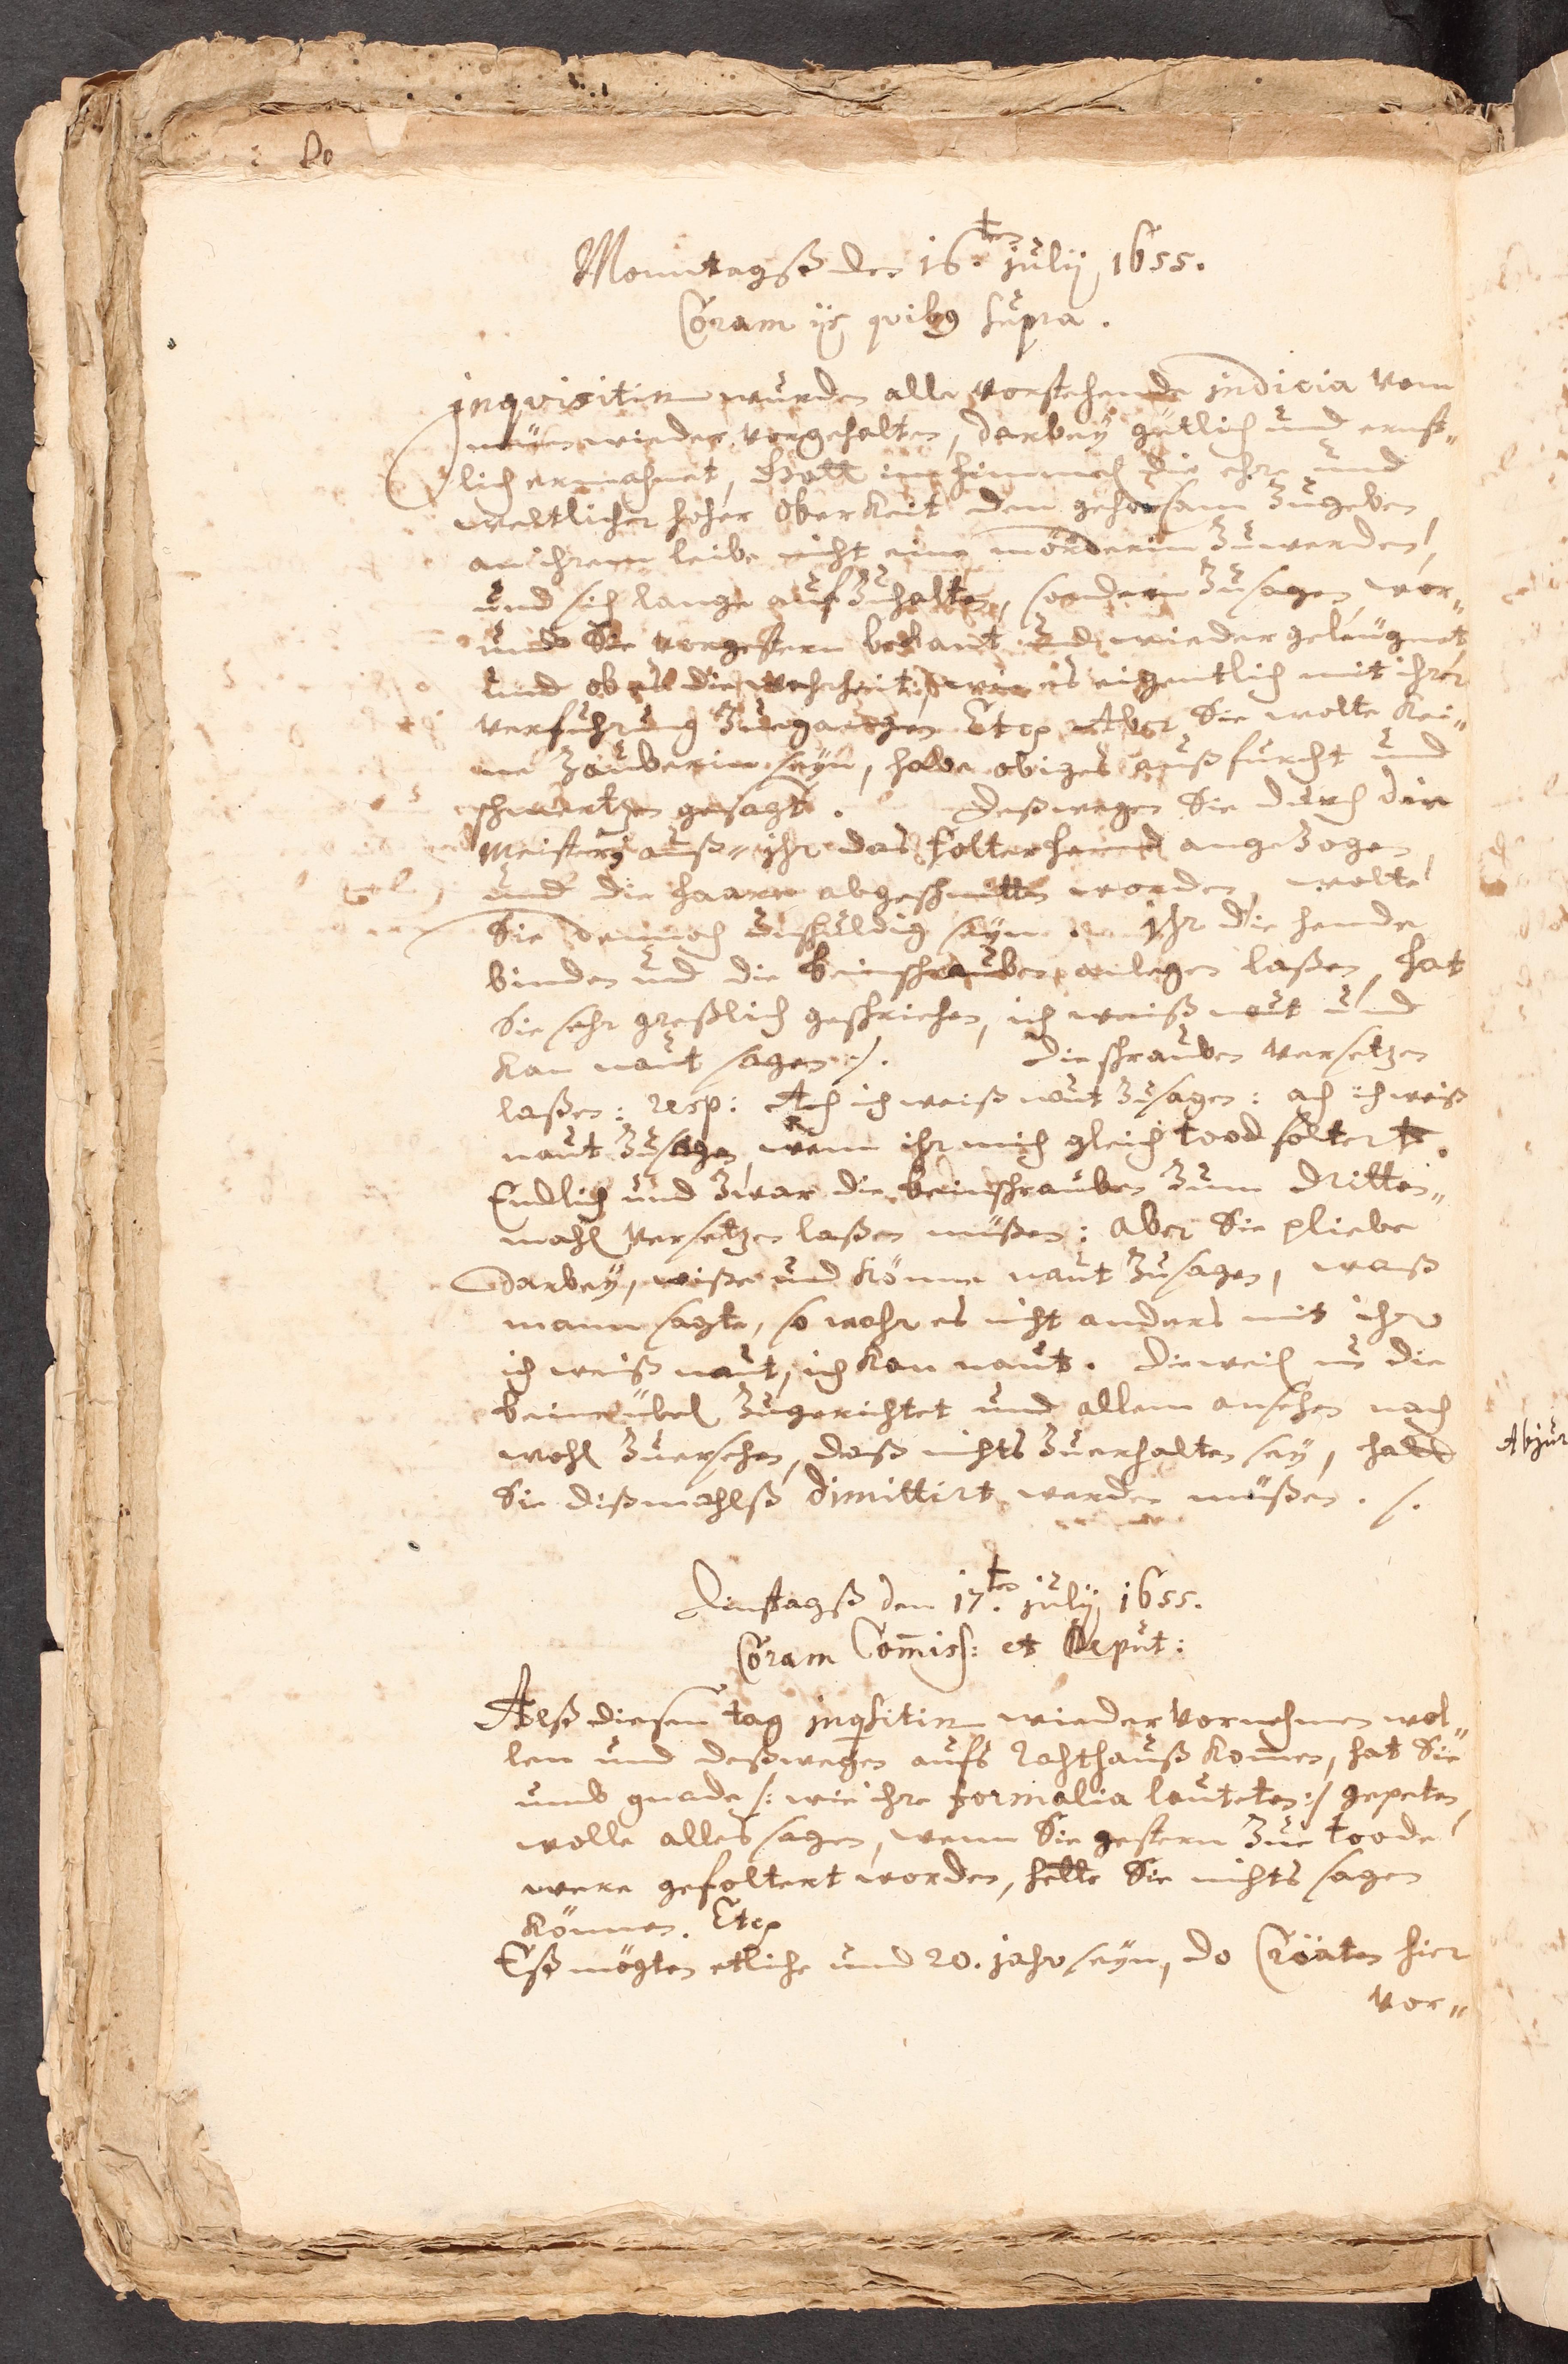 Monntagsß den 16.ten july 1655.
Coram ijs quibus supra.
Inquisitin wurden alle vorstehende indicia vom
neüen wieder vorgehalten, darbey gütlich und ernst„
lich ermahnet, Gott im himmel die ehre und
weltlicher hoher Oberkeit den gehorsam zugeben
an ihrem leibe nicht eine mörderin zuwerden,
und sich lange aufzuhalten, sondern zusagen, wor„
umb Sie vorgestern bekant und wieder geleügnet
und ob es die wahrheit, wie es eigentlich mit ihrer
verführung zugangen Etcp Aber Sie wolte kei„
ne zauberin seyn, habe obiges auß furcht und
schmertzen gesagt. Deßwegen Sie durch den
Meister auß- ihr das folterhemd angezogen
und die haare abgeschnitten worden, wolte
Sie dennoch unschuldig seyn. Ihr die hende
binden und die beinschrauben anlegen laßen, hat
Sie sehr greßlich geschriehen, ich weiß naut und
kan naut sagen /. Die schrauben versetzen
laßen: resp: Ach ich weiß naut zusagen: ach ich weiß
naut zusagen, wenn ihr mich gleich tood foltert.
Endlich und zwar die beinschrauben zum dritten„
mahl versetzen laßen müßen: aber Sie pliebe
darbey, wiße und könne naut zusagen, waß
mann sagte, so wehr es nicht anders mit ihr
ich weiß naut, ich kan naut. Dieweil nun die
beine übel zugerichtet und allem ansehen nach
wohl zuersehen, daß nichts zuerhalten sey, hatt
Sie dißmahlß dimittirt werden müßen. /.
Dinstagß den 17.ten july 1655.
Coram Com̄iss: et Deput:
Alß diesen tag inqsitin wieder vornehmen wol„
len und deßwegen aufs Rahthauß kom̄en, hat Sie
umb gnade /: wie ihre formalia lauteten :/ gepeten,
wolle alles sagen, wenn Sie gestern zue toode
were gefoltert worden, hette Sie nichts sagen
können. Etcp
Eß mögten etliche und 20. jahr seyn, do Cröaten hier
vor„
Abjur